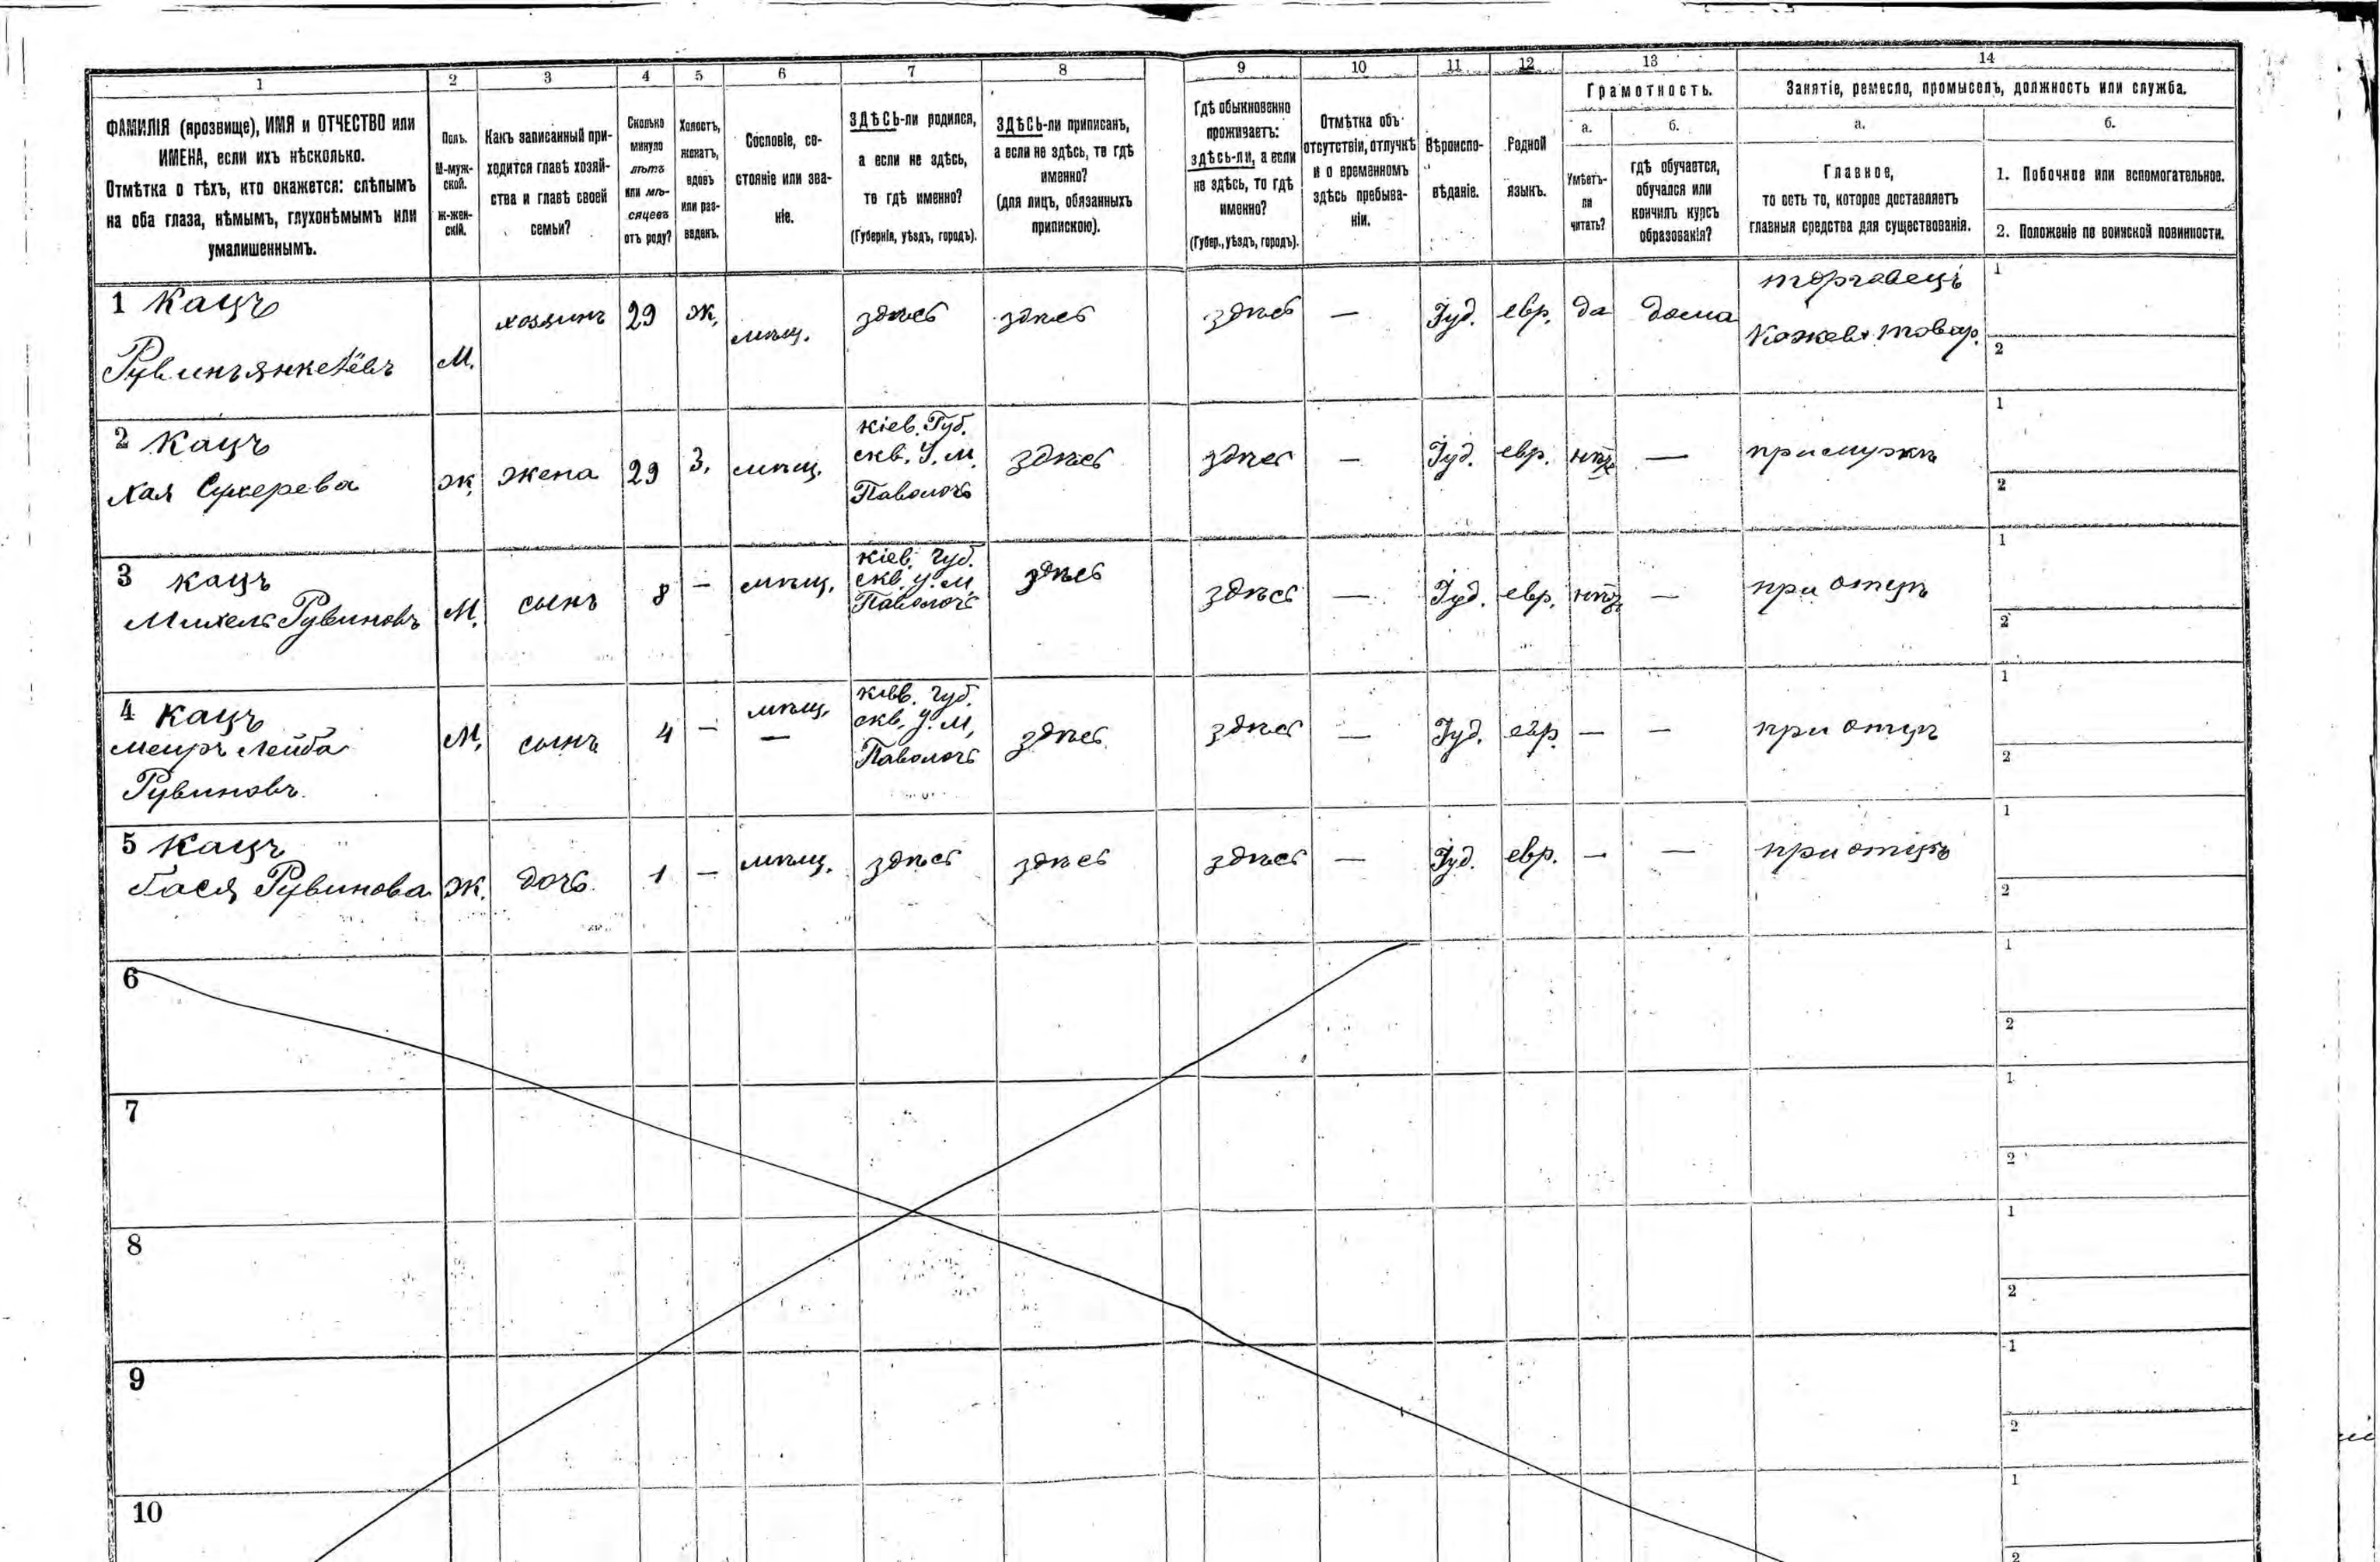 1
2
3
4
5
6
7
8
9
10
11
12
13
14
ФАМИЛІЯ (прозвище), ИМЯ и ОТЧЕСТВО или
ИМЕНА, если ихъ нѣсколько.
Отмѣтка о тѣхъ, кто окажется: слѣпымъ
на оба глаза, нѣмымъ, глухонѣмымъ или
умалишеннымъ.
Полъ.
М-муж-
ской.
Ж-жен-
скій.
Какъ записанный при-
ходится главѣ хозяй-
ства и главѣ своей
семьи?
Сколько
минуло
лѣтъ
или мѣ-
сяцевъ
отъ роду?
Холостъ,
женатъ,
вдовъ
или раз-
веденъ.
Сословіе, со-
стояніе или зва-
ніе.
ЗДѢСЬ-ли родился,
а если не здѣсь,
то гдѣ именно?
(Губернія, уѣздъ, городъ).
ЗДѢСЬ-ли приписанъ,
а если не здѣсь, то гдѣ
именно?
(для лицъ, обязанныхъ
припискою).
Гдѣ обыкновенно
проживаетъ:
здѣсь-ли, а если
не здѣсь, то гдѣ
именно?
(Губер., уѣздъ, городъ).
Отмѣтка объ
отсутствіи, отлучкѣ
и о временномъ
здѣсь пребыва-
ніи.
Вѣроиспо-
вѣданіе.
Родной
языкъ.
Грамотность.
а.
Умѣетъ-
ли
читать?
б.
гдѣ обучается,
обучался или
кончилъ курсъ
образованія?
Занятіе, ремесло, промыселъ, должность или служба.
а.
Главное,
то есть то, которое доставляетъ
главныя средства для существованія.
б.
1. Побочное или вспомогательное.
2. Положеніе по воинской повинности.
1 Кацъ
Рувинъ Янкелёвъ
М.
хозяинъ
29
Ж,
мѣщ.
здѣсь
здѣсь
здѣсь
—
Іуд.
евр.
да
дома
торговецъ
Кожев. товар.
1
2
2 Кацъ
Хая Сухерева
Ж.
жена
29
З.
мѣщ.
кіев. Губ.
скв. У. м.
Паволочь
здѣсь
здѣсь
—
Іуд.
евр.
нѣт
—
при мужѣ
1
2
3 Кацъ
Михель Рувиновъ
М.
сынъ
8
—
мѣщ.
кіев. губ.
скв. у. м.
Паволочь
здѣсь
здѣсь
—
Іуд.
евр.
нѣт
—
при отцѣ
1
2
4 Кацъ
Меиръ Лейба
Рувиновъ.
М.
сынъ
4
—
мѣщ.
—
кіев. губ.
скв. У. м,
Паволочь
здѣсь
здѣсь
—
Іуд.
евр.
—
—
при отцѣ
1
2
5 Кацъ
Бася Рувинова
Ж.
дочь
1
—
мѣщ.
здѣсь
здѣсь
здѣсь
—
Іуд.
евр.
—
—
при отцѣ
1
2
6
1
2
7
1
2
8
1
2
9
1
2
10
1
2